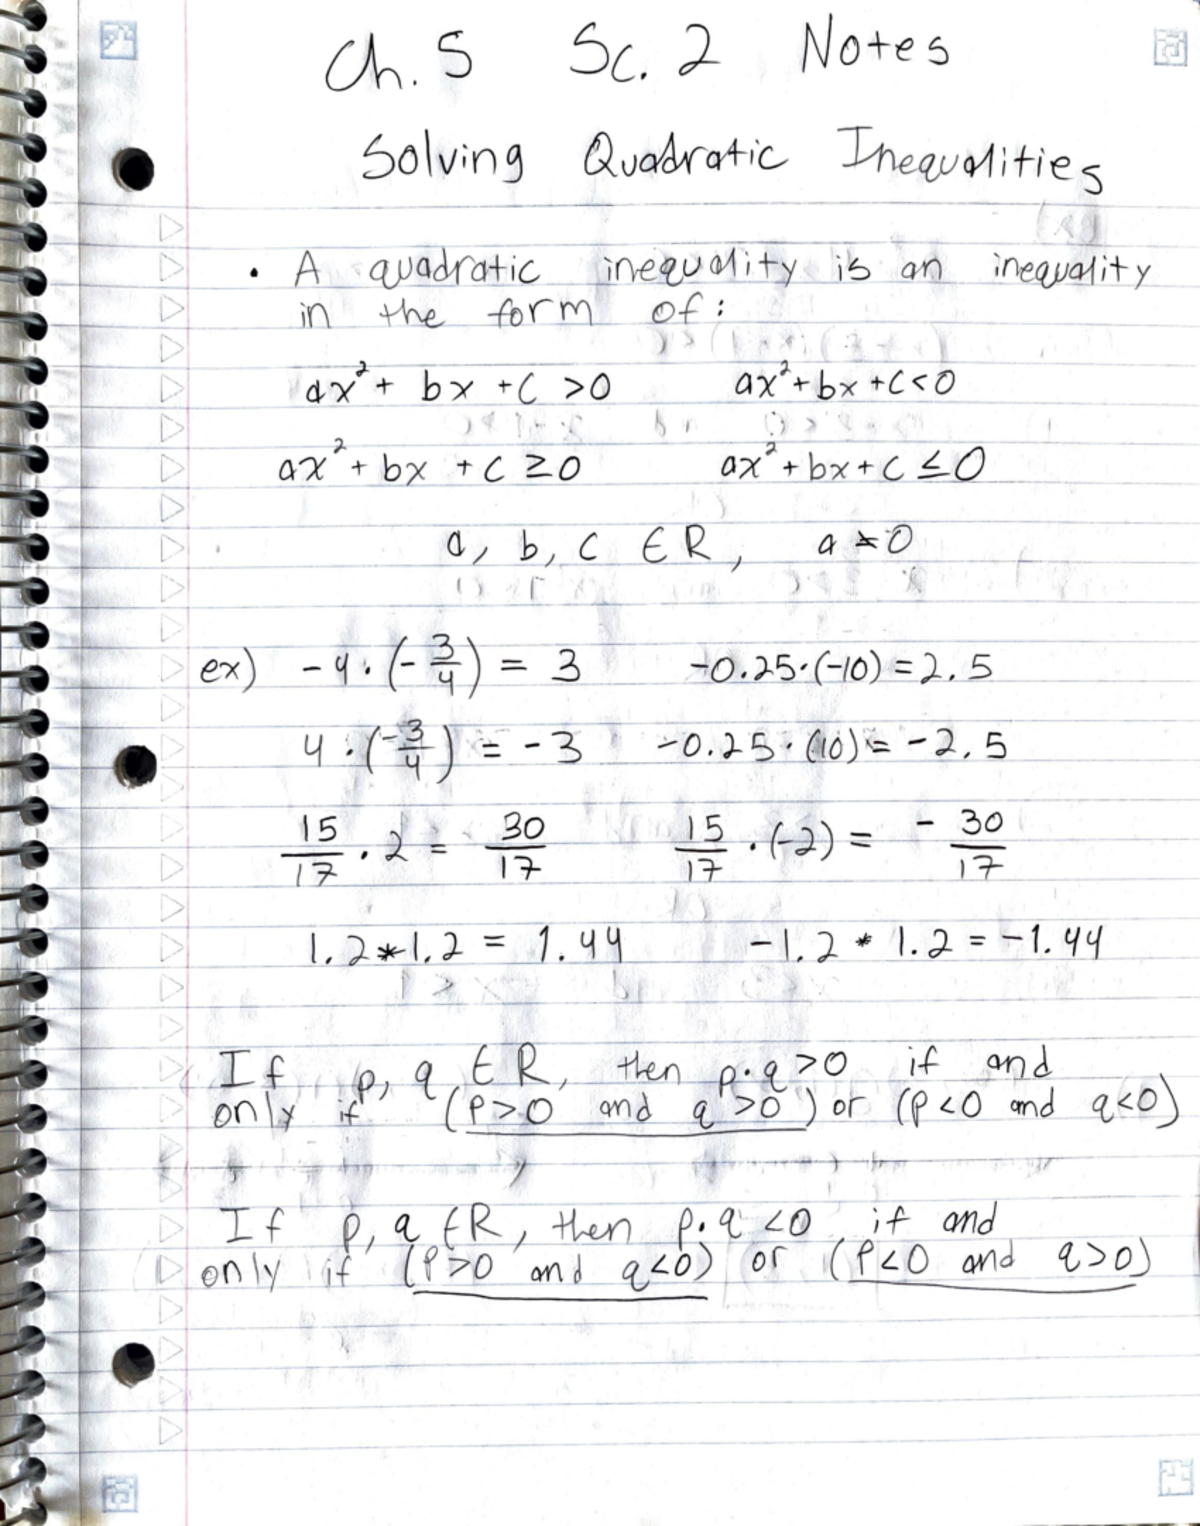 Ch. 5 Sc. 2 Notes
Solving Quadratic Inequalities
• A quadratic inequality is an inequality
in the form of:
ax² + bx + c > 0 ax² + bx + c < 0
ax² + bx + c ≥ 0 ax² + bx + c ≤ 0
a, b, c ∈ R, a ≠ 0
ex) -4 · (-3/4) = 3 -0.25 · (-10) = 2.5
4 · (-3/4) = -3 -0.25 · (10) = -2.5
15/17 · 2 = 30/17 15/17 · (-2) = - 30/17
1.2 * 1.2 = 1.44 -1.2 * 1.2 = -1.44
If p, q ∈ R, then p · q > 0 if and
only if (p > 0 and q > 0) or (p < 0 and q < 0)
If p, q ∈ R, then p · q < 0 if and
only if (p > 0 and q < 0) or (p < 0 and q > 0)